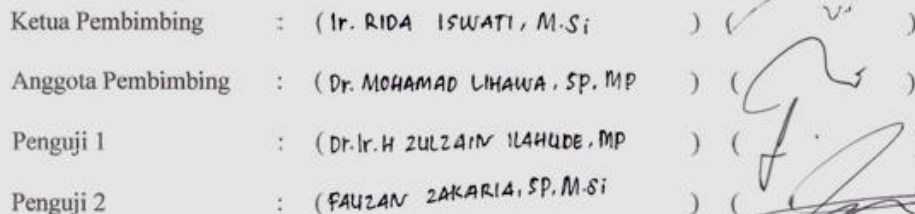 Ketua Pembimbing : (Ir. RIDA ISWATI, M.Si ) ( )
Anggota Pembimbing : (Dr. MOHAMAD LIHAWA, SP, MP ) ( )
Penguji 1 : (Dr.Ir.H ZULZAIN ILAHUDE, MP ) (
Penguji 2 : (FAUZAN ZAKARIA, SP, M.Si ) (